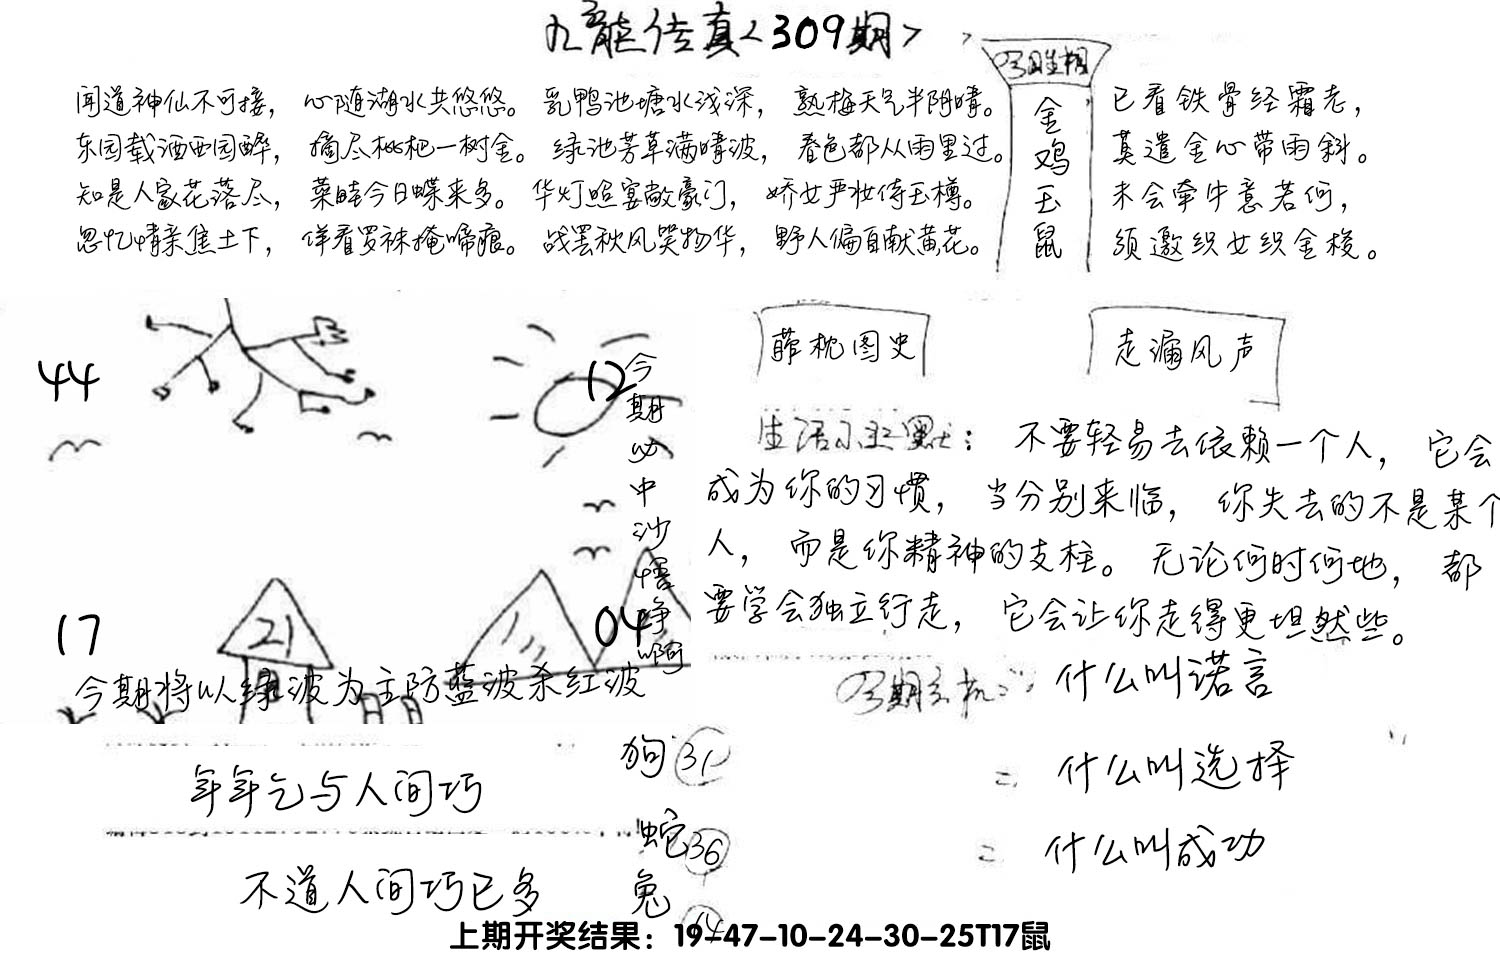 九龙传真<309期>
闻道神仙不可接，心随湖水共悠悠。乳鸭池塘水浅深，熟梅天气半阴晴。
东园载酒西园醉，摘尽枇杷一树金。绿池芳草满晴波，春色都从雨里过。
知是人家花落尽，菜畦今日蝶来多。华灯照宴敞豪门，娇女严妆侍玉樽。
忽忆情亲焦土下，佯看罗袜掩啼痕。战罢秋风笑物华，野人偏自献黄花。
金鸡玉鼠
已看铁骨经霜老，
莫遣金心带雨斜。
未会牵牛意若何，
须邀织女织金梭。
44
12
17
04
21
今期必中沙
今期将以绿波为主防蓝波杀红波
藉枕图史
走漏风声
生活小幽默：不要轻易去依赖一个人，它会
成为你的习惯，当分别来临，你失去的不是某个
人，而是你精神的支柱。无论何时何地，都
要学会独立行走，它会让你走得更坦然些。
今期玄机
什么叫诺言
二 什么叫选择
二 什么叫成功
年年乞与人间巧
不道人间巧已多
狗 31
蛇 36
兔
上期开奖结果：19-47-10-24-30-25T17鼠